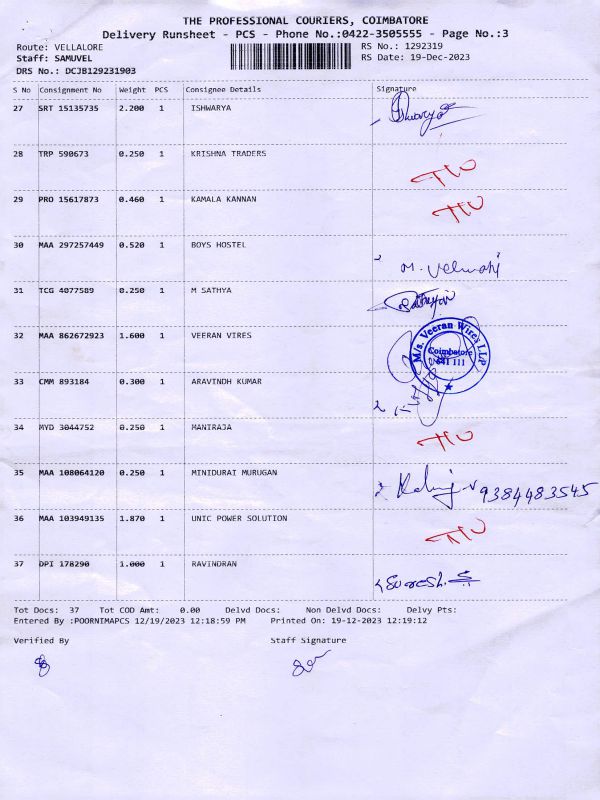 THE PROFESSIONAL COURIERS, COIMBATORE
Delivery Runsheet - PCS - Phone No.:0422-3505555 - Page No.:3
Route: VELLALORE RS No.: 1292319
Staff: SAMUVEL RS Date: 19-Dec-2023
DRS No.: DCJB129231903
S No Consignment No Weight PCS Consignee Details Signature
27 SRT 15135735 2.200 1 ISHWARYA
28 TRP 590673 0.250 1 KRISHNA TRADERS
29 PRO 15617873 0.460 1 KAMALA KANNAN
30 MAA 297257449 0.520 1 BOYS HOSTEL
M. Velmani
31 TCG 4077589 0.250 1 M SATHYA
32 MAA 862672923 1.600 1 VEERAN VIRES
M/s. Veeran Wirex LLP
Coimbatore
641 111
33 CMM 893184 0.300 1 ARAVINDH KUMAR
34 MYD 3044752 0.250 1 MANIRAJA
35 MAA 108064120 0.250 1 MINIDURAI MURUGAN
9384483545
36 MAA 103949135 1.870 1 UNIC POWER SOLUTION
37 DPI 178290 1.000 1 RAVINDRAN
Suresh. S
Tot Docs: 37 Tot COD Amt: 0.00 Delvd Docs: Non Delvd Docs: Delvy Pts:
Entered By :POORNIMAPCS 12/19/2023 12:18:59 PM Printed On: 19-12-2023 12:19:12
Verified By Staff Signature